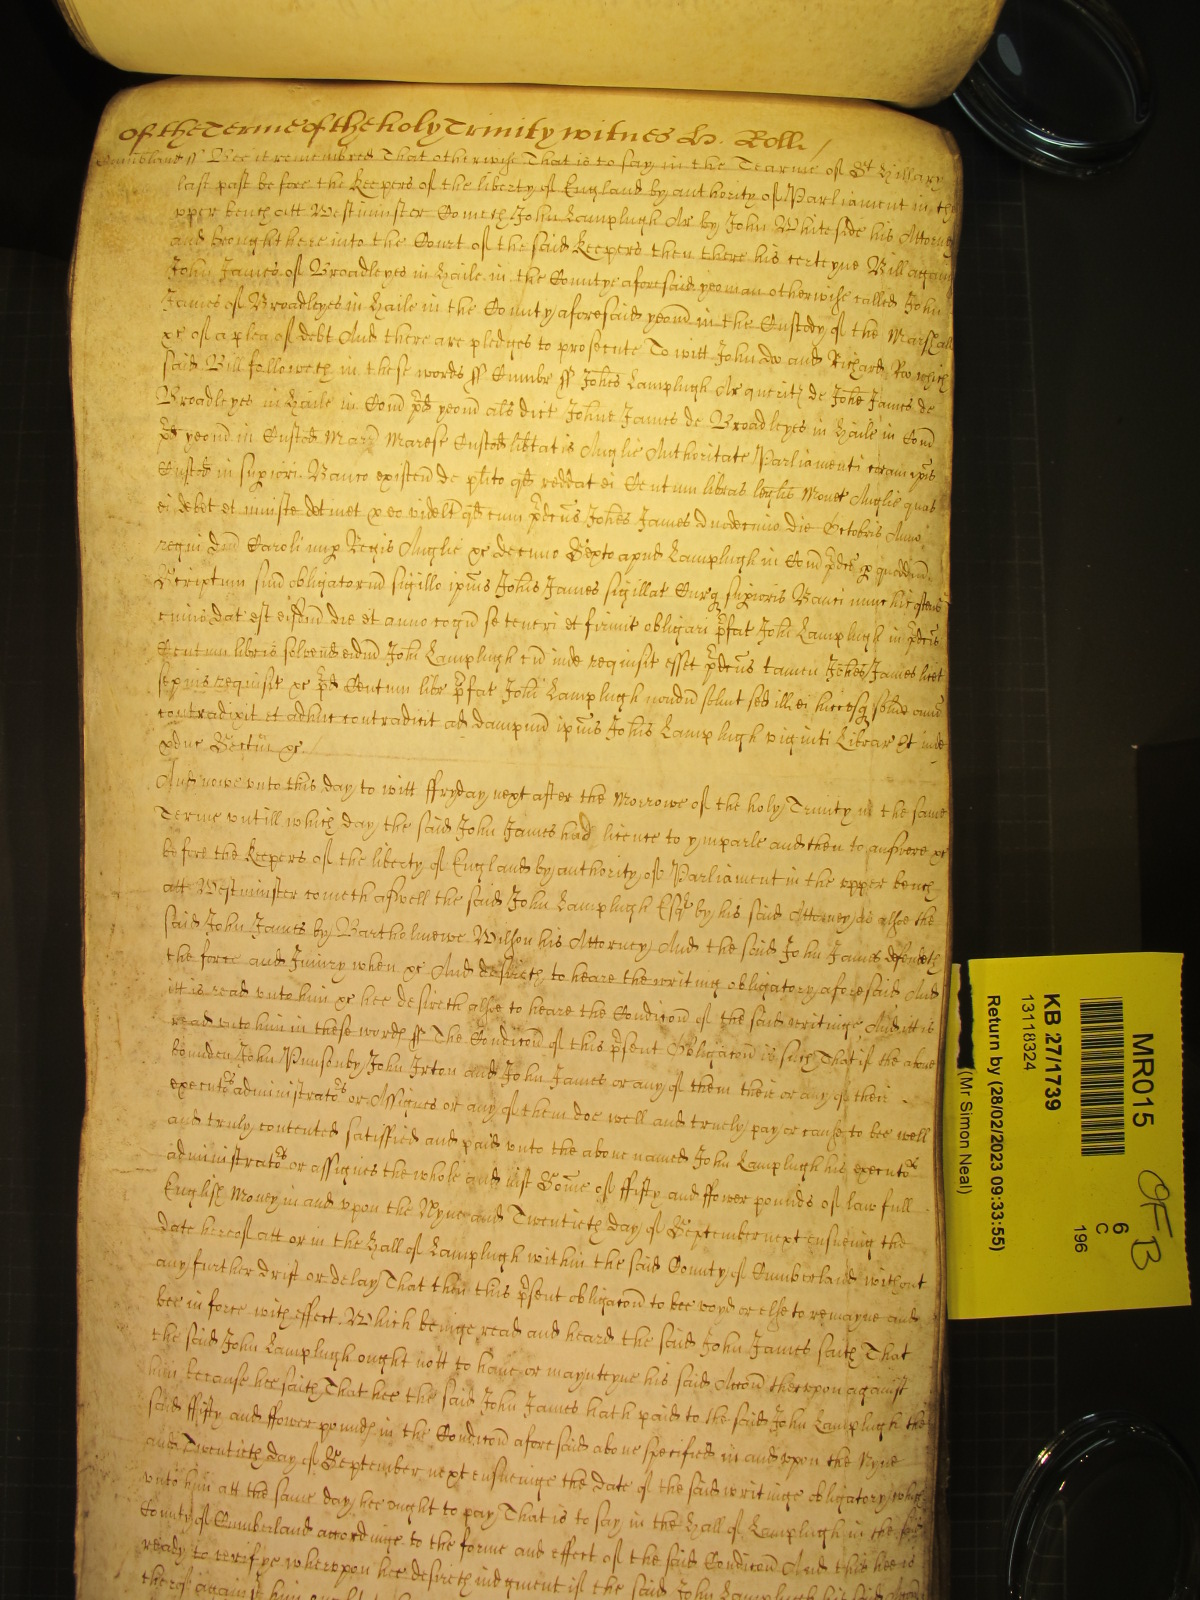 Of the Terme of the holy Trinity witnes H. Rolle
Cumbland ss Bee it remembred That otherwise That is to say in the Tearme of St Hillary
last past before the Keepers of the liberty of England by authority of Parliament in the
vpper bench att Westminster Cometh John Lamplugh Ar by John Whiteside his Attorny
and brought here into the Court of the said Keepers then there his certeyne Bill against
John James of Broadleyes in Haile in the Countye aforesaid yeoman otherwise called John
James of Broadleyes in Haile in the County aforesaid yeom in the Custody of the Marshall
xc of a plea of debt And there are pledges to prosecute To witt John doo and Richard Roo which
said Bill followeth in these words ss Cumbr ss Johes Lamplugh Ar querit de Johe James de
Broadleyes in Haile in Com pd yeom als dict Johne James de Broadleyes in Haile in Com
pd yeom in Custod Marr Maresc Custod libtatis Anglie Authoritate Parliamenti coram ipis
Custod in supiori Banco existen de plito qd reddat ei Centum libras leglis Monet Anglie quas
ei debet et iniuste detinet p eo videlt qd cum pdcus Johes James duodecimo die Octobris Anno
regni dni Caroli nup Regis Anglie xc decimo Sexto apud Lamplugh in Com pdco p quoddam
Scriptum suu obligatoriu sigillo ipius Johis James sigillat Curq supioris Banci nunc hic ostens
cuius dat est eisdm die et anno cogn se teneri et firmit obligari pfat Johi Lamplugh in pdcis
Centum libris solvend eidm Johi Lamplugh cu inde requisit esset pdcus tamen Johes James licet
sepius requisit xc pd Centum libr pfat Johi Lamplugh nondu solvit sed ill ei hucusq solve omo
contradixit et adhuc contradicit ad dampnu ipius Johis Lamplugh viginti Librar Et inde
pduc Sectam xc
And nowe vnto this day to witt ffryday next after the Morrowe of the holy Trinity in the same
Terme vntill which day the said John James had licence to ymparle and then to answere xc
before the Keepers of the liberty of England by authority of Parliament in the vpper bench
att Westminster cometh aswell the said John Lamplugh Esqr by his said Attorney as alsoe the
said John James by Bartholmewe Wilson his Attorney And the said John James defendeth
the force and Iniury when xc And desireth to heare the writing obligatory aforesaid And
itt is read vnto him xc hee desireth alsoe to heare the Condicon of the said writinge And itt is
read vnto him in these words ss The Condicon of this psent Obligacon is such That if the above
bounden John Punsonby John Irton and John James or any of them their or any of their
executos administratos or Assignes or any of them doe well and truely pay or cause to bee well
and truly contented satisfied and paid vnto the above named John Lamplugh his executos
administratos or assignes the whole and iust Some of ffifty and ffower pounds of lawfull
English Money in and vpon the Nyne and Twentieth day of September next ensueing the
date hereof att or in the Hall of Lamplugh within the said County of Cumberland without
any further drift or delay That then this psent obligacon to bee voyd or else to remayne and
bee in force with effect. Which beinge read and heard the said John James saith That
the said John Lamplugh ought nott to have or maynteyne his said Accon therevpon against
him because hee saith That hee the said John James hath paid to the said John Lamplugh the
said ffifty and ffower pounds in the Condicon aforesaid above specified in and vpon the Nyne
and Twentieth day of September next ensueinge the date of the said writinge obligatory which
vnto him att the same day hee ought to pay That is to say in the Hall of Lamplugh in the said
County of Cumberland accordinge to the forme and effect of the said Condicon And this hee is
ready to verifye wherevpon hee desireth iudgment if the said John Lamplugh his said Accon
thereof against him ought to
MR015
KB 27/1739
13118324
Return by (28/02/2023 09:33:55)
(Mr Simon Neal)
6
C
196
OFB